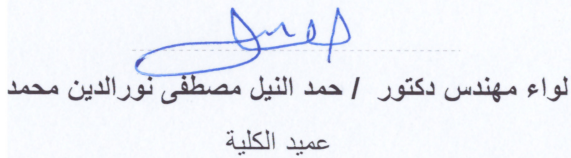 لواء مهندس دكتور / حمد النيل مصطفى نورالدين محمد
عميد الكلية